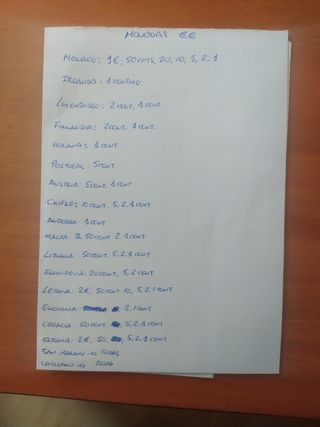 MONEDAS €€
MONACO: 1€, 50 CENTS, 20, 10, 5, 2, 1
IRLANDA: 1 CENTIMO
LUXEMBURGO: 2 CENT, 1 CENT
FINLANDIA: 2 CENT, 1 CENT.
HOLANDA: 1 CENT.
PORTUGAL: 5 CENT.
AUSTRIA: 5 CENT, 1 CENT
CHIPRE: 10 CENT. 5, 2, 1 CENT
ANDORRA: 1 CENT
MALTA: 50 CENT 2, 1 CENT.
LITUANIA: 50 CENT. 5, 2, 1 CENT
ESLOVAQUIA: 20 CENT, 5, 2 CENT
LETONIA: 2€, 50 CENT. 10, 5, 2, 1 CENT
ESLOVENIA: 2, 1 CENT
CROACIA: 50 CENT 5, 2, 1 CENT
ESTONIA: 2€, 50, 5, 2, 1 CENT
SAN MARINO → TODAS
VATICANO → TODAS